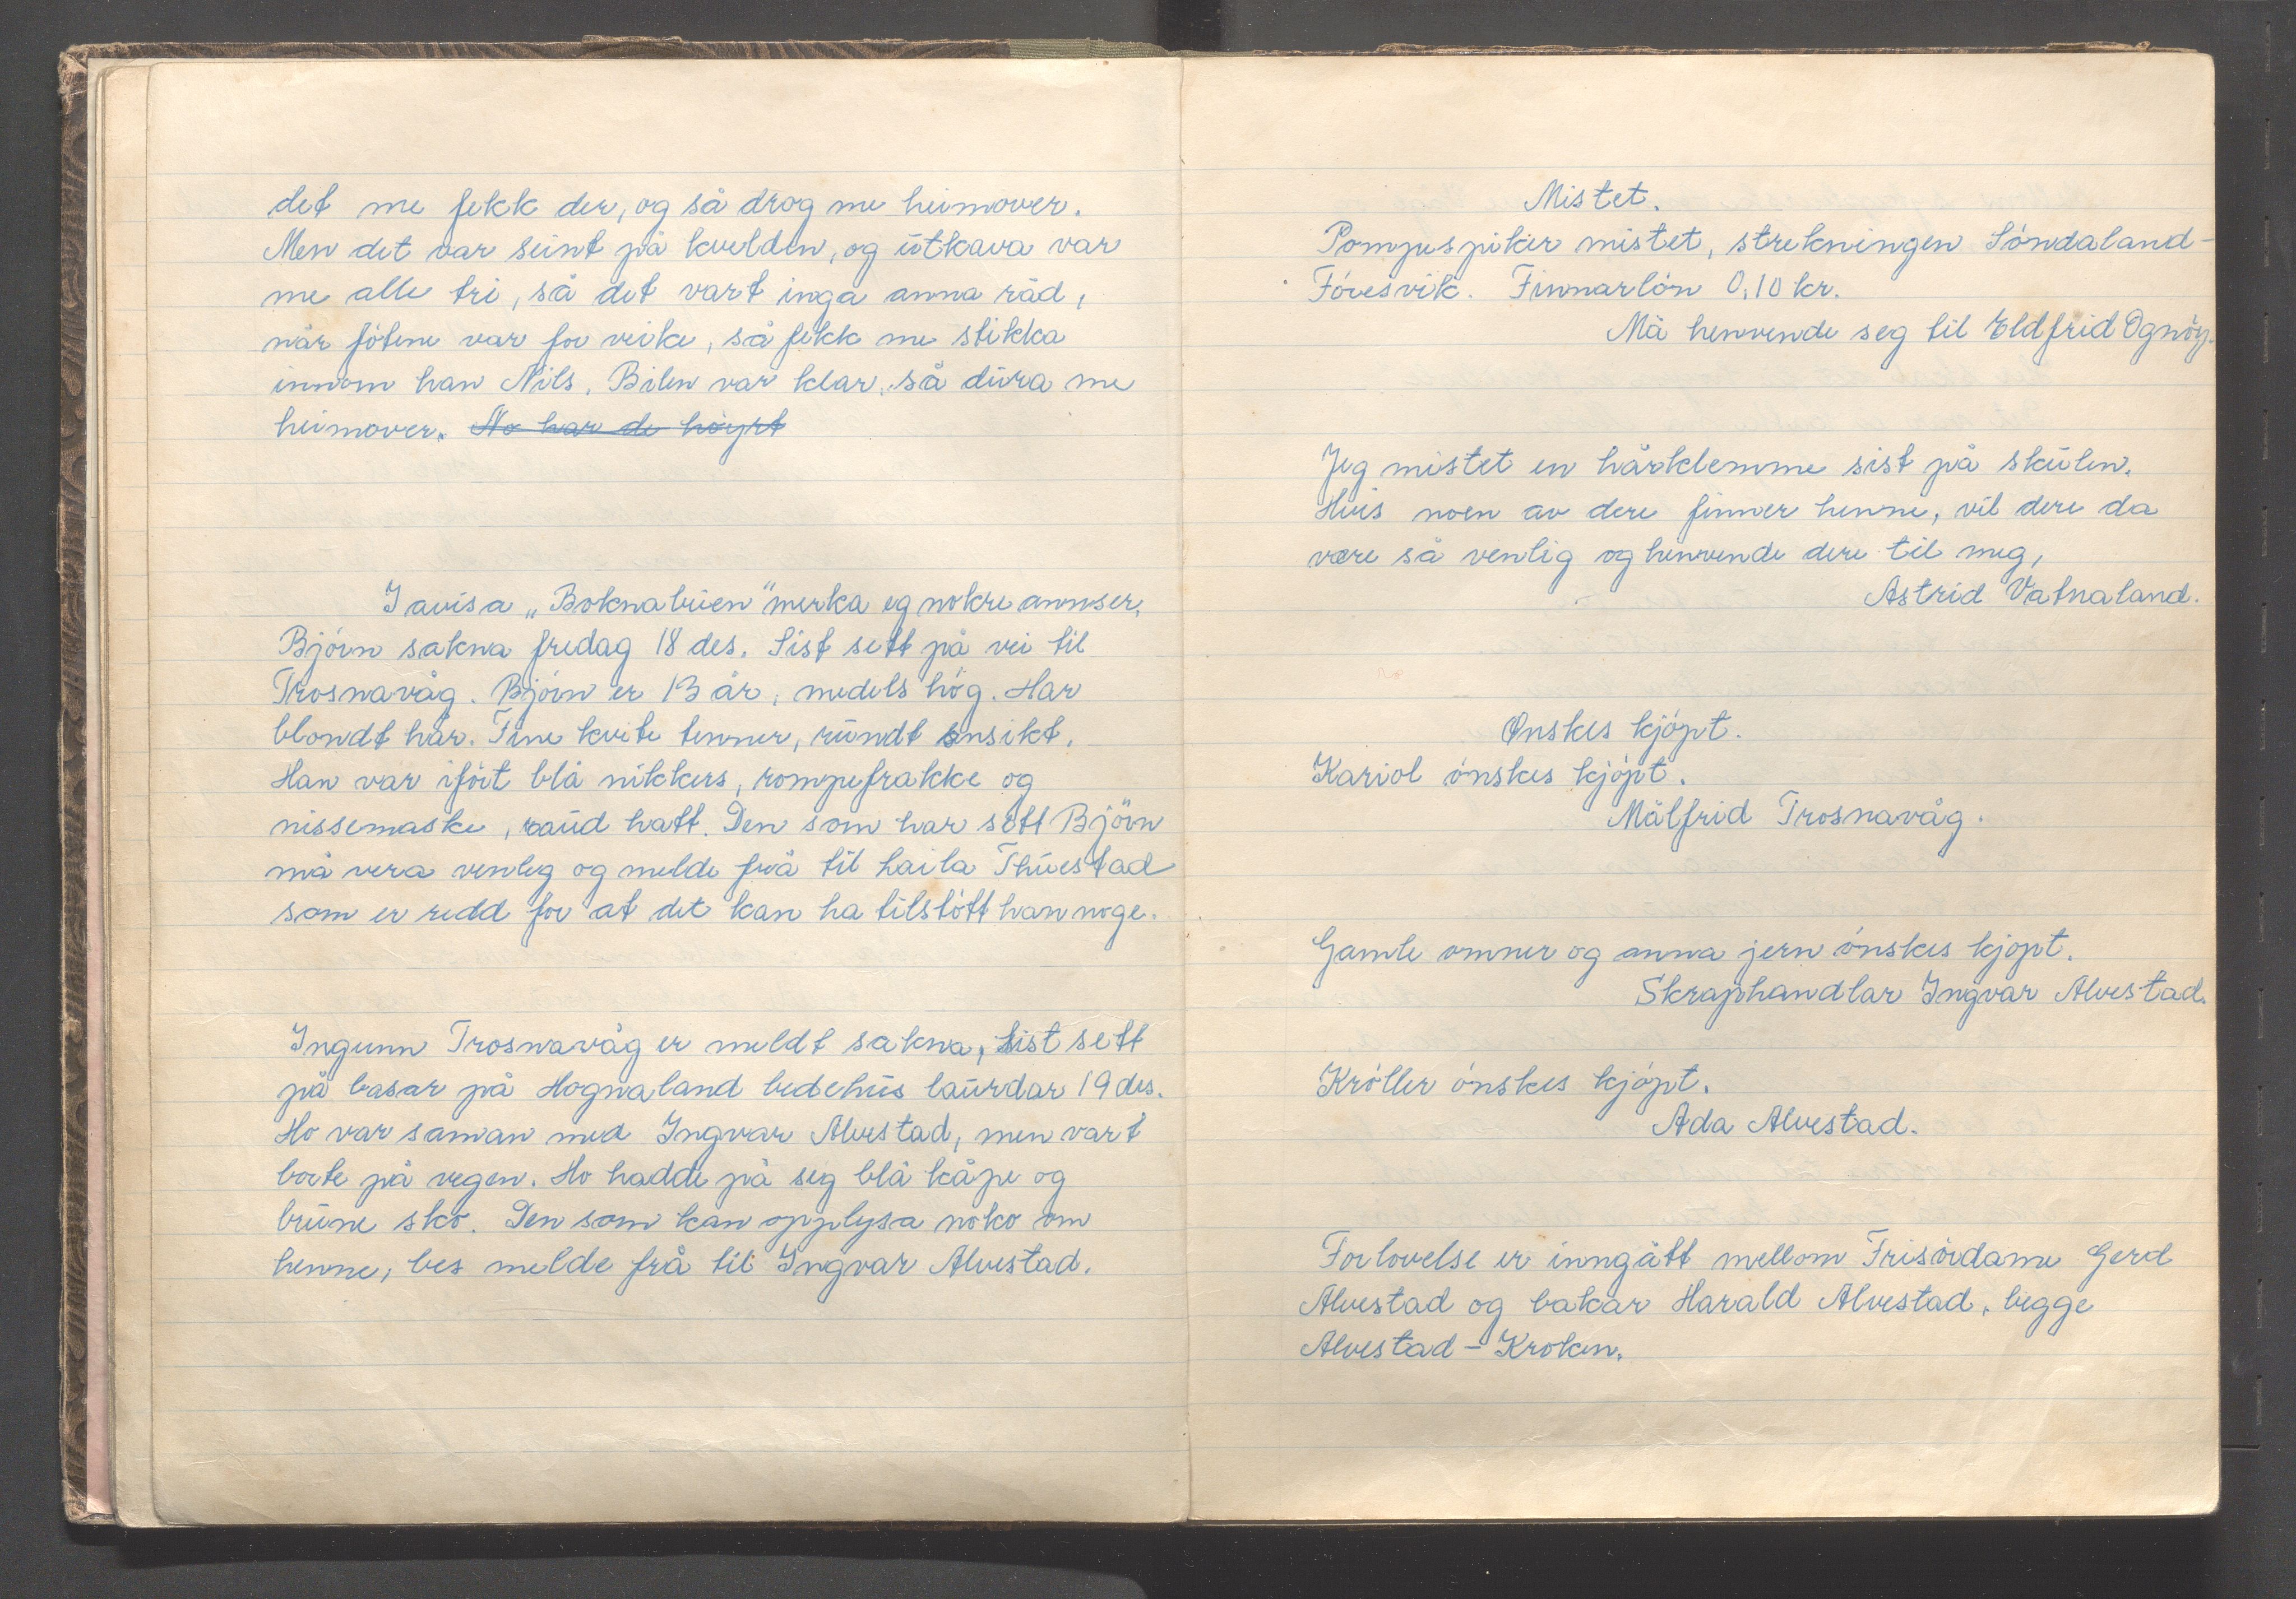 det me fekk der, og så drog me heimover.
Men det var seint på kvelden, og utkava var
me alle tri, så det vart inga anna råd,
når føtene var for veike, så fekk me stikka
innom han Nils. Bilen var klar, så dura me
heimover. No har de høyrt
I avisa „Boknabuen" merka eg nokre annser.
Bjørn sakna fredag 18 des. Sist sett på vei til
Trosnavåg. Bjørn er 13 år, medels høg. Har
blondt hår. Fine kvite tenner, rundt ansikt.
Han var iført blå nikkers, rompefrakke og
nissemaske, raud hatt. Den som har sett Bjørn
må vera venleg og melde frå til Laila Thuestad
som er redd for at det kan ha tilstøtt han noge.
Ingunn Trosnavåg er meldt sakna, sist sett
på basar på Hognaland bedehus laurdar 19 des.
Ho var saman med Ingvar Alvestad, men vart
borte på vegen. Ho hadde på seg blå kåpe og
brune sko. Den som kan opplysa noko om
henne, bes melde frå til Ingvar Alvestad.
Mistet.
Pompespiker mistet, strekningen Søndaland-
Føresvik. Finnarløn 0,10 kr.
Må henvende seg til Eldfrid Ognøy.
Jeg mistet en hårklemme sist på skulen.
Hvis noen av dere finner henne, vil dere da
være så venlig og henvende dere til meg,
Astrid Vatnaland.
Ønskes kjøpt.
Kariol ønskes kjøpt.
Målfrid Trosnavåg.
Gamle omner og anna jern ønskes kjøpt.
Skraphandlar Ingvar Alvestad.
Krøller ønskes kjøpt.
Ada Alvestad.
Forlovelse er inngått mellom Frisørdame Gerd
Alvestad og bakar Harald Alvestad, begge
Alvestad - Kroken.